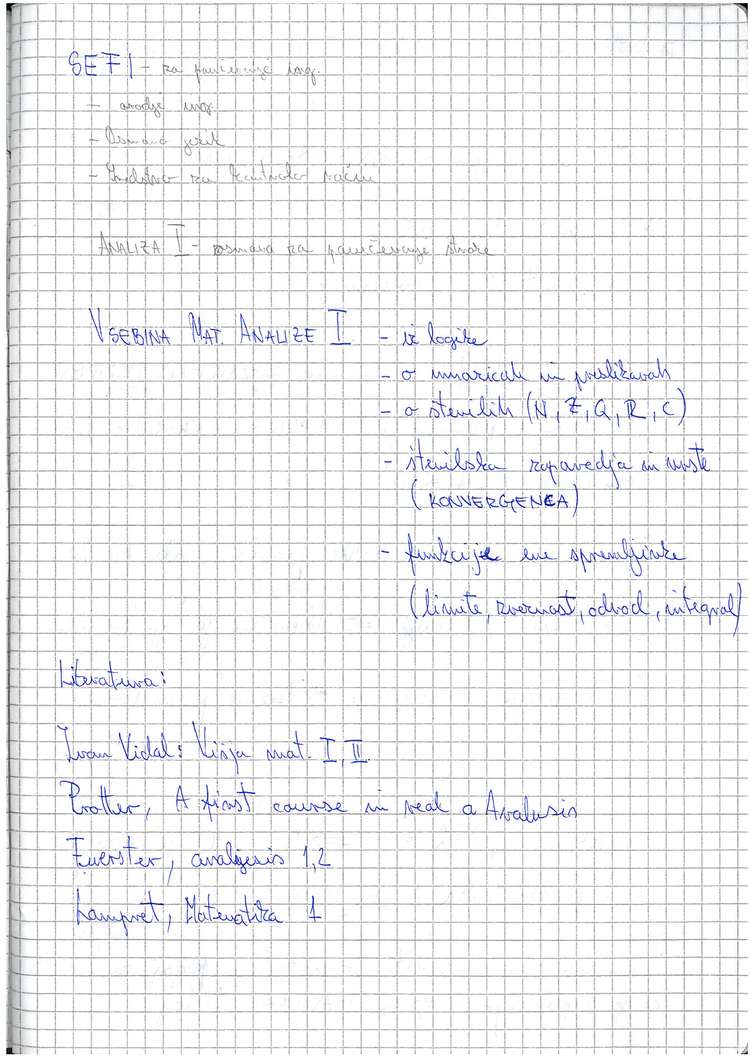 SEFI - za poučevanje ing.
- orodje ing.
- Osnovno jezik
- Sredstvo za kontrolo
ANALIZA I - osnova za poučevanje stroke
VSEBINA MAT. ANALIZE I - iz logike
- o množicah in preslikavah
- o številih (N, Z, Q, R, C)
- številska zaporedja in vrste
(KONVERGENCA)
- funkcije ene spremljivke
(limite, zveznost, odvod, integral)
Literatura:
Ivan Vidal: Višja mat. I, II
Protter, A first course in real a Analusis
analysis 1,2
Lampret, Matematika 1